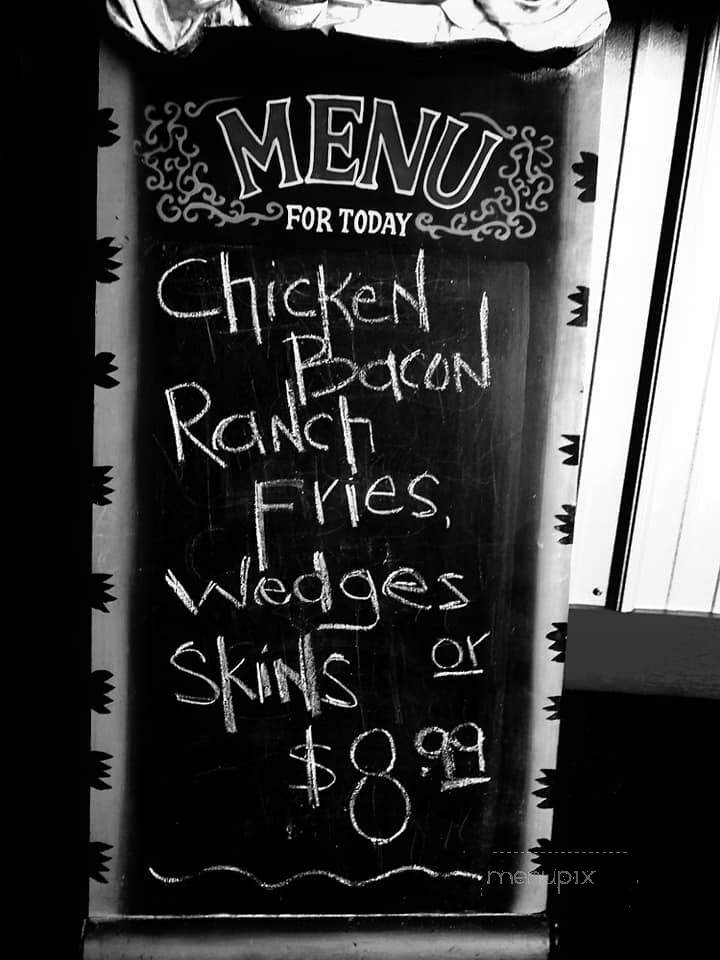 MENU
FOR TODAY
Chicken
Bacon
Ranch
Fries,
Wedges
Skins or
$8.99
menupix